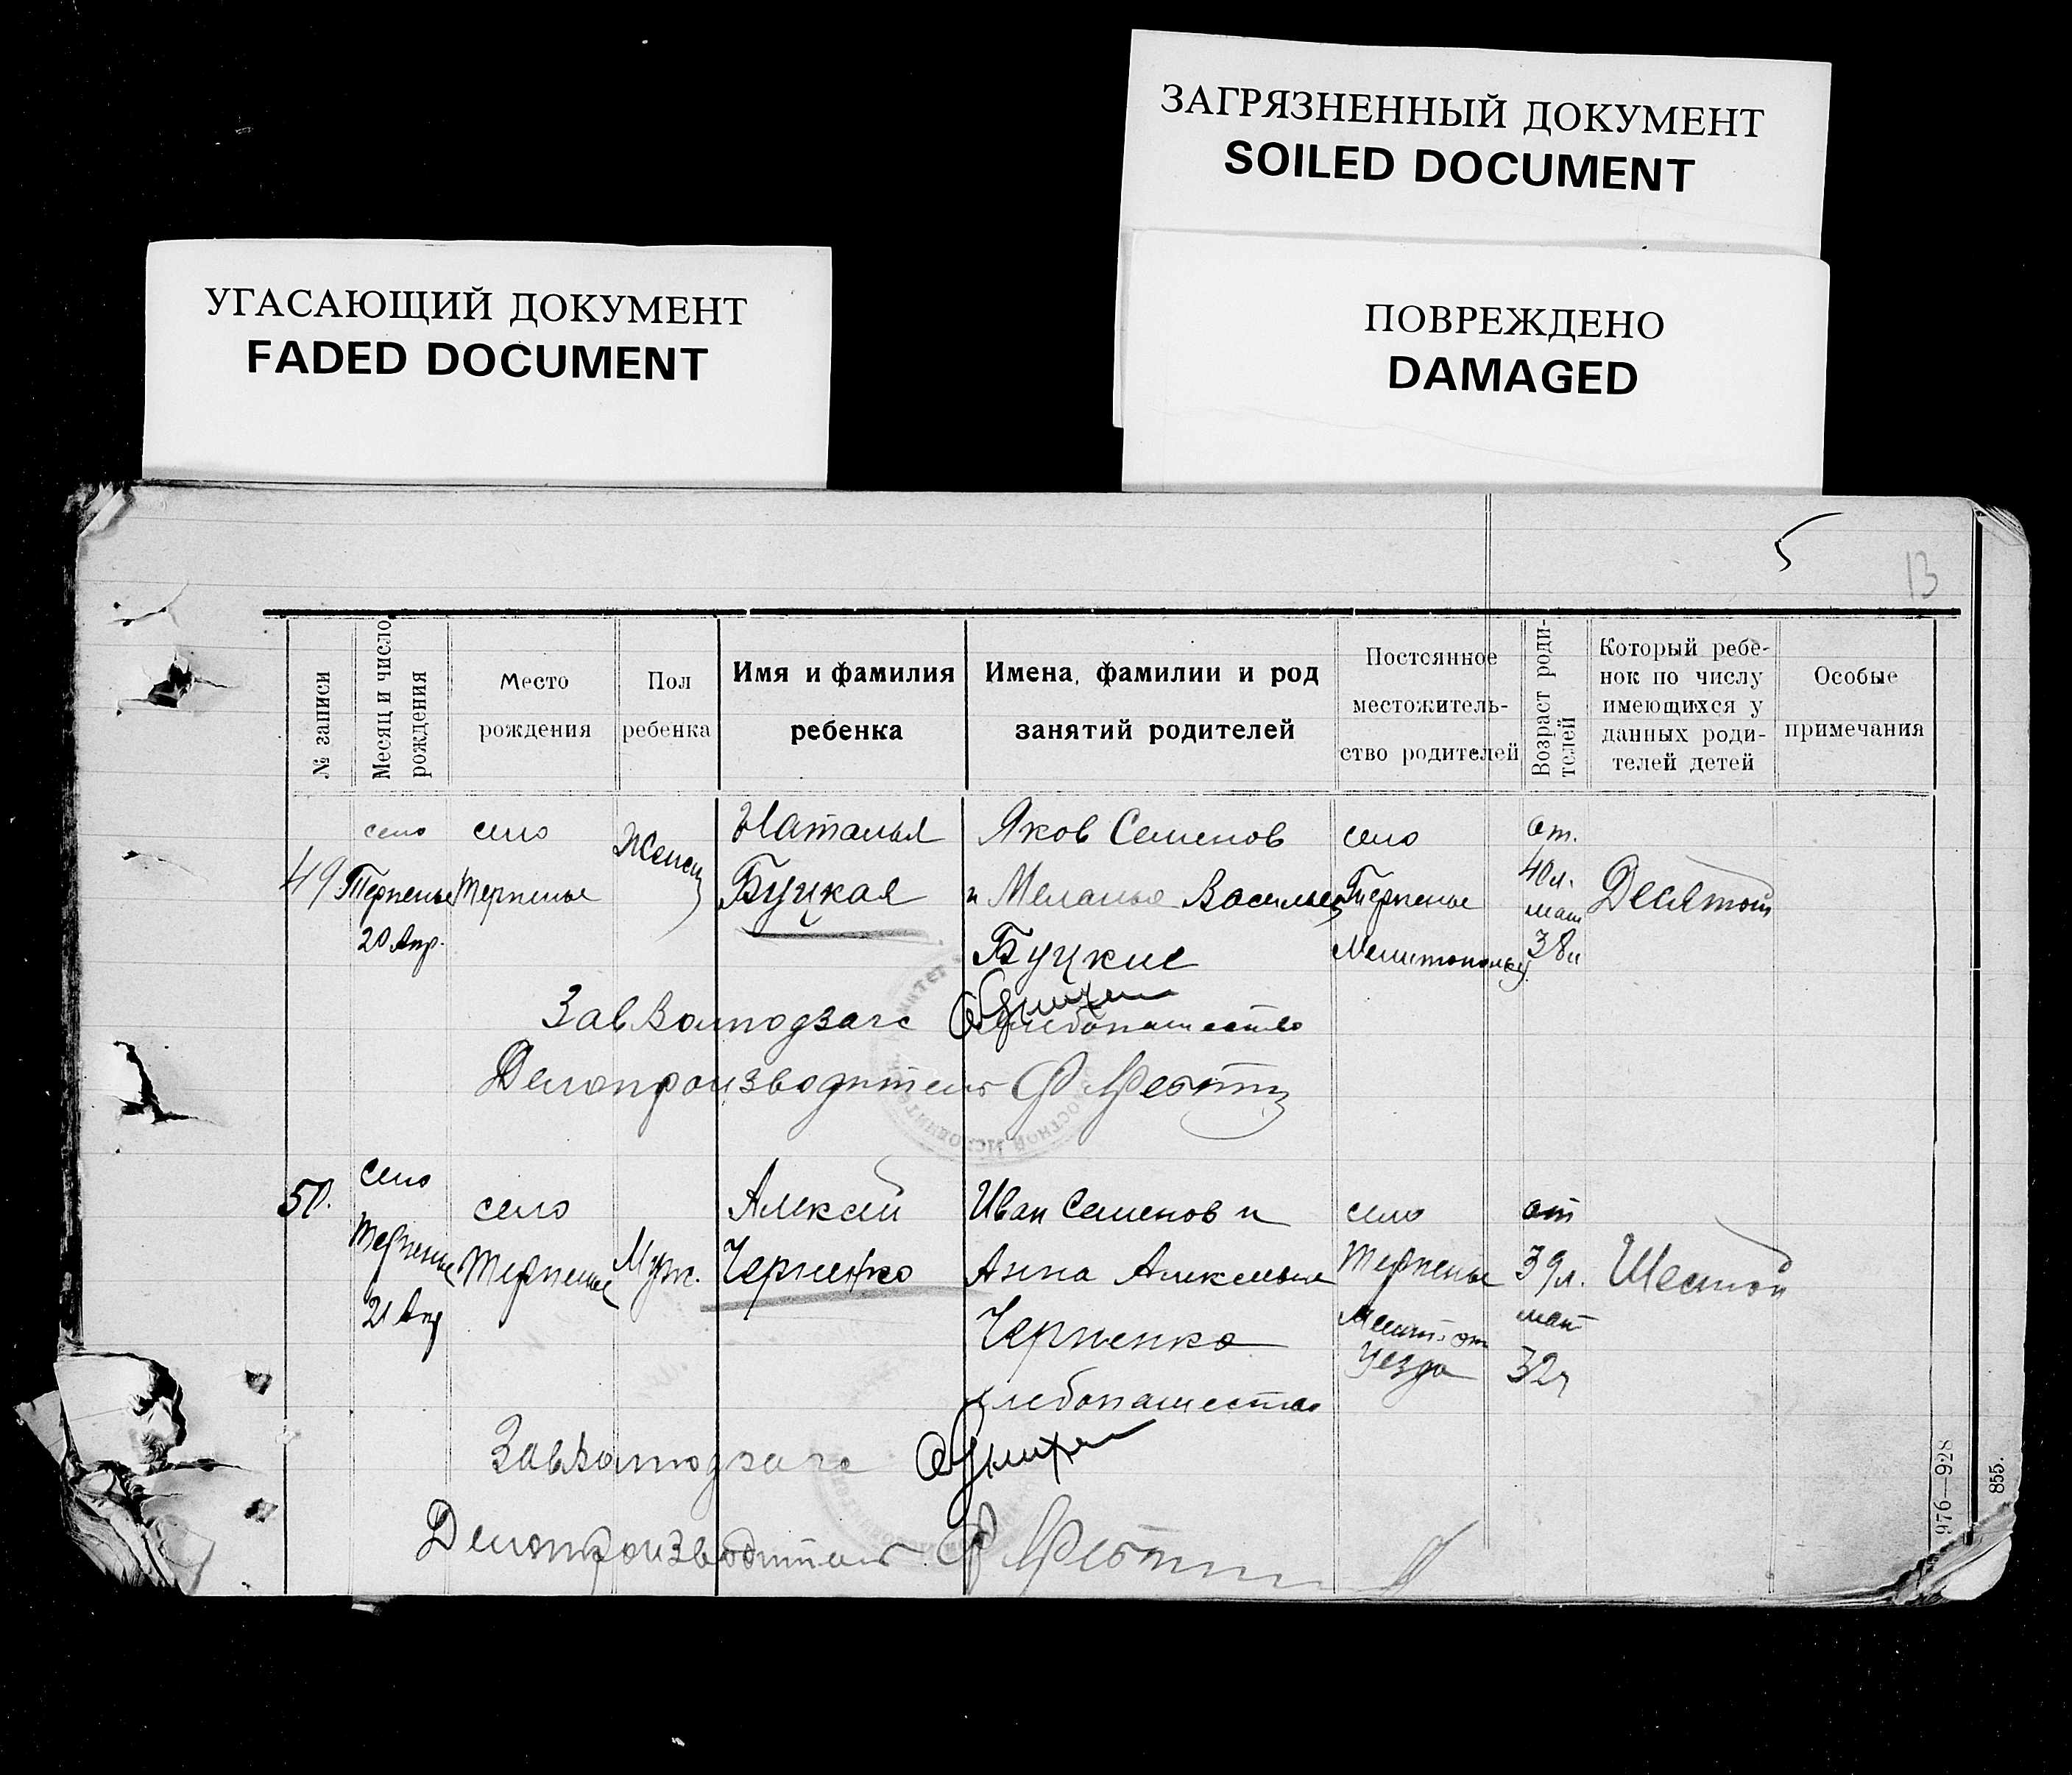 ЗАГРЯЗНЕННЫЙ ДОКУМЕНТ
SOILED DOCUMENT
УГАСАЮЩИЙ ДОКУМЕНТ
FADED DOCUMENT
ПОВРЕЖДЕНО
DAMAGED
5
13
№ записи
Месяц и число
рождения
Место
рождения
Пол
ребенка
Имя и фамилия
ребенка
Имена, фамилии и род
занятий родителей
Постоянное
местожитель-
ство родителей
Возраст роди-
телей
Который ребе-
нок по числу
имеющихся у
данных роди-
телей детей
Особые
примечания
49
село
Терпенье
20 Апр.
село
Терпенье
Женск
Наталья
Буцкая
Яков Семенов
и Меланья Васильев
Буцкие
хлебопашество
село
Терпенье
Мелитопольск
от.
40 л.
мат
38 л
Десятый
Завволподзагс
Делопроизводитель
50.
село
Терпенье
21 Апр
село
Терпенье
Муж.
Алексей
Черненко
Иван Семенов и
Анна Алексеевна
Черненко
хлебопашество
село
Терпенье
Мелит.
Уезда
от
39 л.
мат
32 л
Шестой
Завволподзагс
Делопроизводитель
976—928
855.